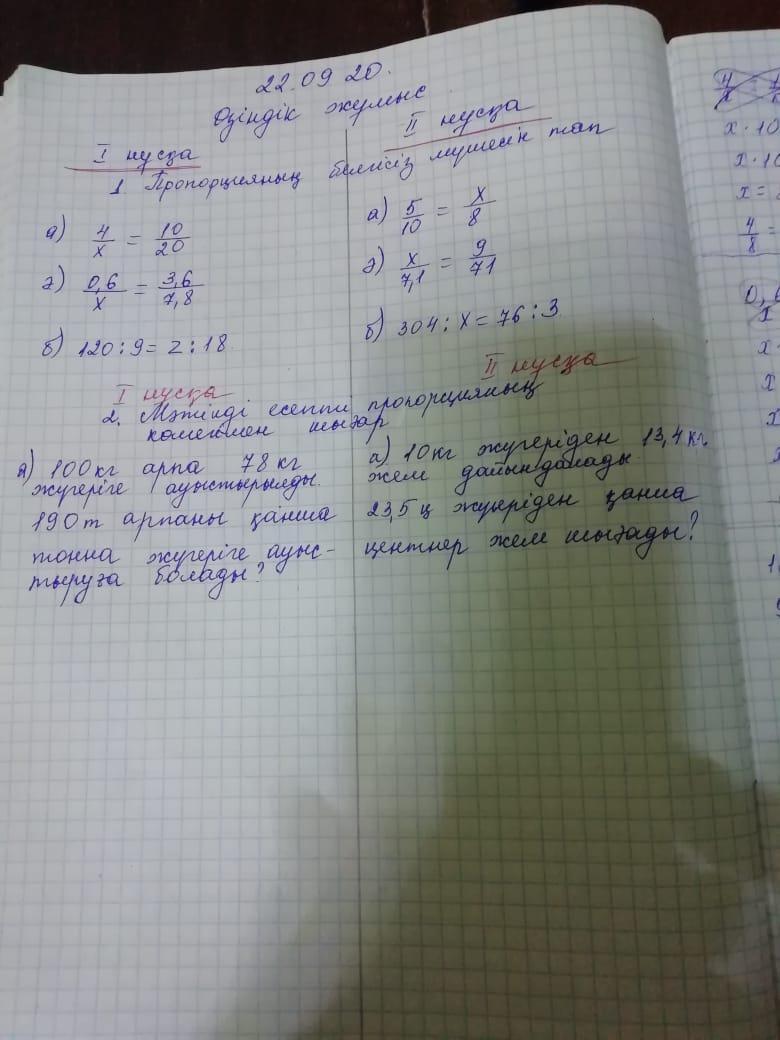 22.09 20.
Өзіндік жұмыс
I нұсқа
II нұсқа
1. Пропорцияның белгісіз мүшесін тап
а) 4/x = 10/20
ә) 0,6/x = 3,6/7,8
б) 120:9=z:18.
а) 5/10 = x/8
ә) x/7,1 = 9/71
б) 304:x=76:3.
I нұсқа
II нұсқа
2. Мәтінді есепті пропорцияның
көмегімен шығар
а) 100кг арпа 78 кг
жүгеріге ауыстырылды.
190т арпаны қанша
тонна жүгеріге ауыс-
тыруға болады?
а) 10кг жүгеріден 13,4 кг
жем дайындалады.
23,5 ц жүгеріден қанша
центнер жем шығады?
4/x
x·10
x·10
x=
4/8=
0,6
x
x
x
x